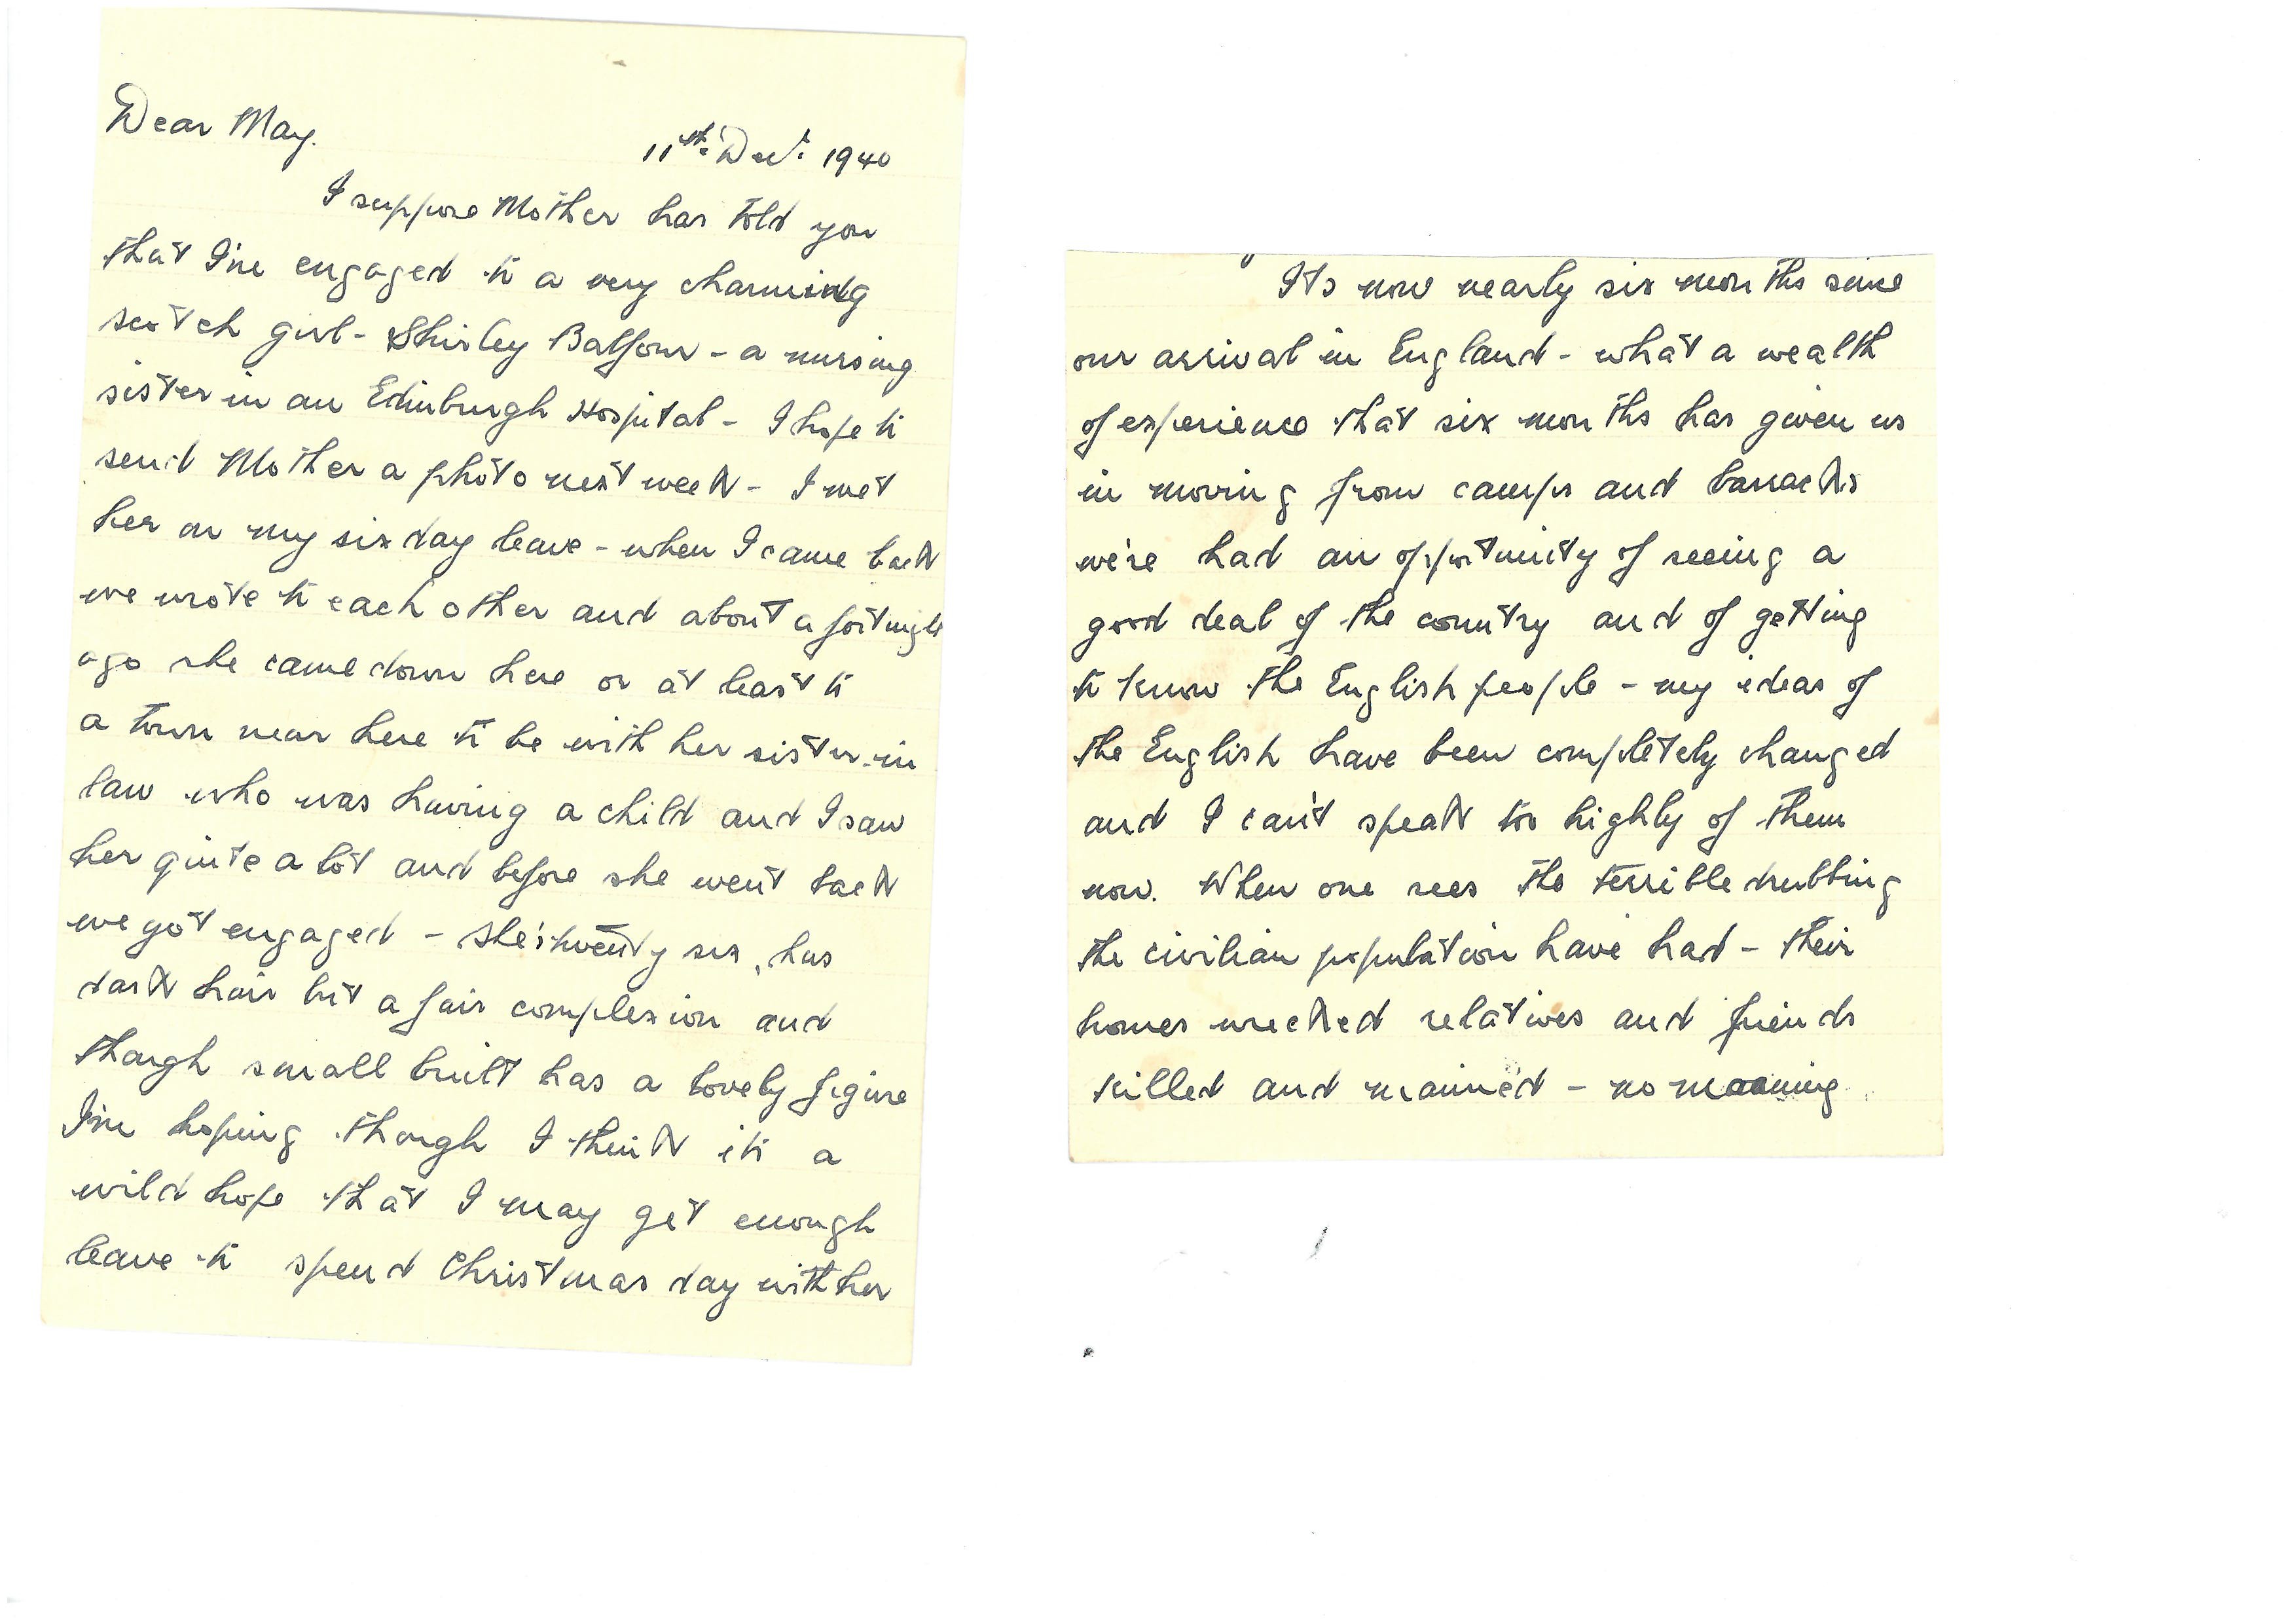 Dear May.
11th Dec. 1940
I suppose Mother has told you
that I'm engaged to a very charming
scotch girl - Shirley Balfour - a nursing
sister in an Edinburgh Hospital - I hope to
send Mother a photo next week - I met
her on my six day leave - when I came back
we wrote to each other and about a
ago she came down here or at least to
a town near here to be with her sister-in
law who was having a child and I saw
her quite a lot and before she went back
we got engaged - she's twenty six, has
dark hair but a fair complexion and
though small built has a lovely figure
I'm hoping though I think it's a
wild hope that I may get enough
leave to spend Christmas day with her
Its now nearly six months since
our arrival in England - what a wealth
of experience that six months has given us
in moving from camps and barracks
we've had an opportunity of seeing a
good deal of the country and of getting
to know the English people - my ideas of
the English have been completely changed
and I can't speak too highly of them
now. When one sees the terrible drubbing
the civilian population have had - their
homes wrecked relatives and friends
killed and maimed - no moaning